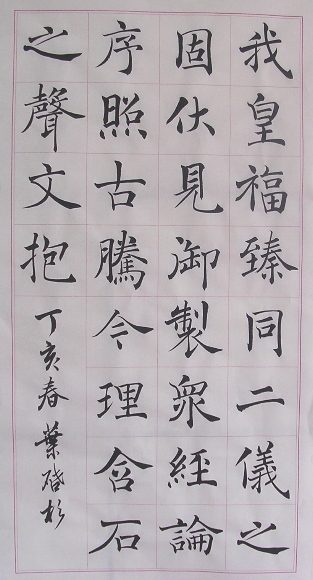 我皇福臻同二儀之
固伏見御製衆經論
序照古騰今理含石
之聲文抱
丁亥春葉